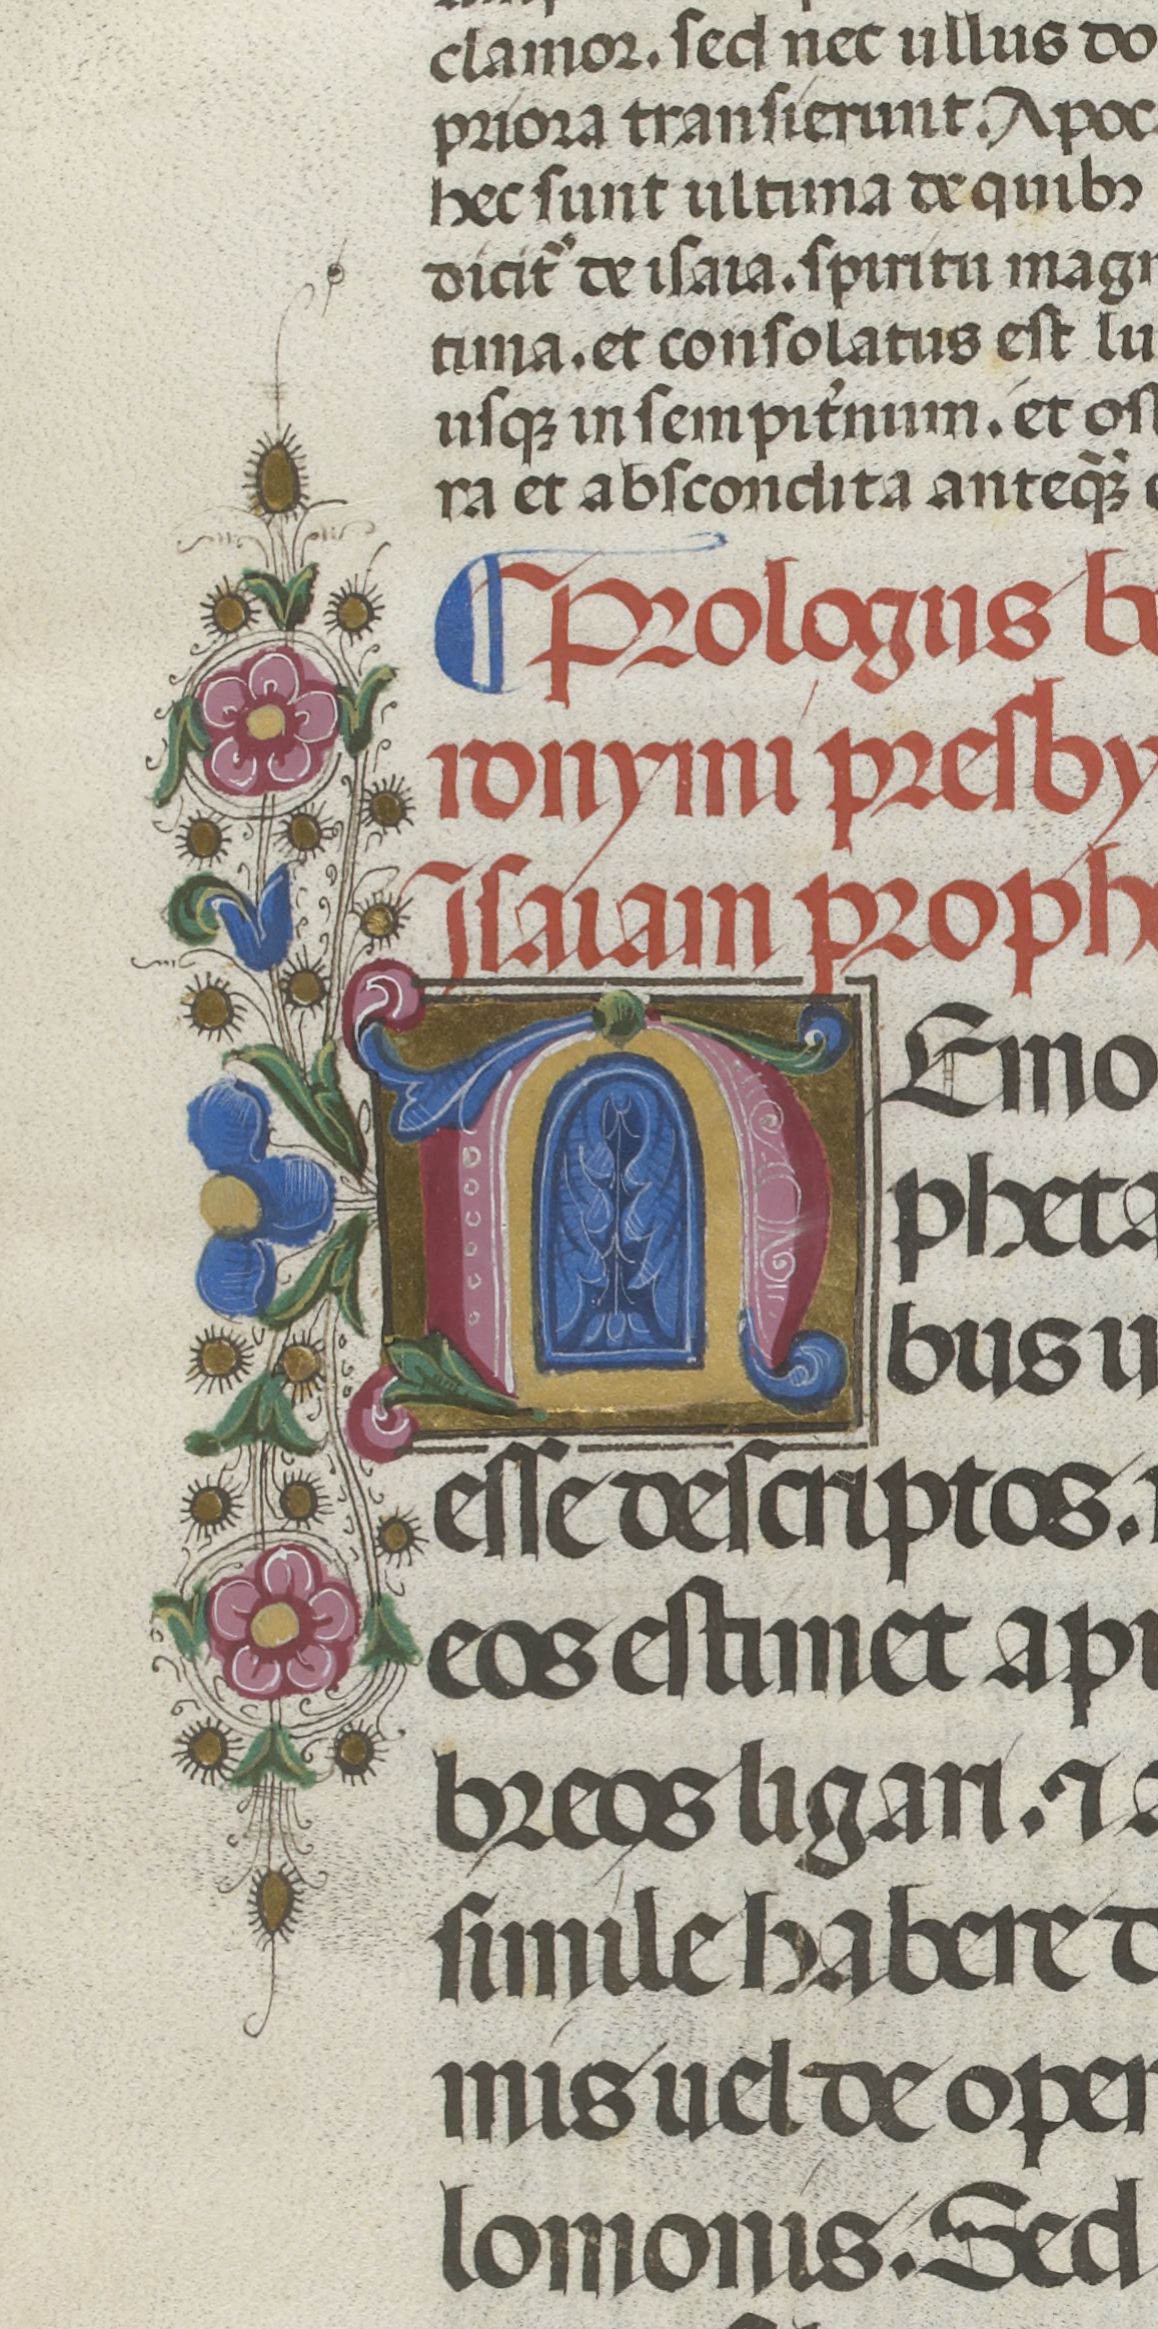 clamor. sed nec ullus do
priora transierunt. Apoc
hec sunt ultima de quibꝫ
dicit͛ de isaia. spiritu magn
tima. et consolatus est lu
usqꝫ in sempit͛num. et ost
ra et abscondita anteq̃ꝫ
¶ Prologus be
ronymi presby
Isaiam prophe
NEmo
pheta
bus u
esse descriptos.
eos estimet apu
breos ligari. ⁊ a
simile habere
mis uel de oper
lomonis. Sed